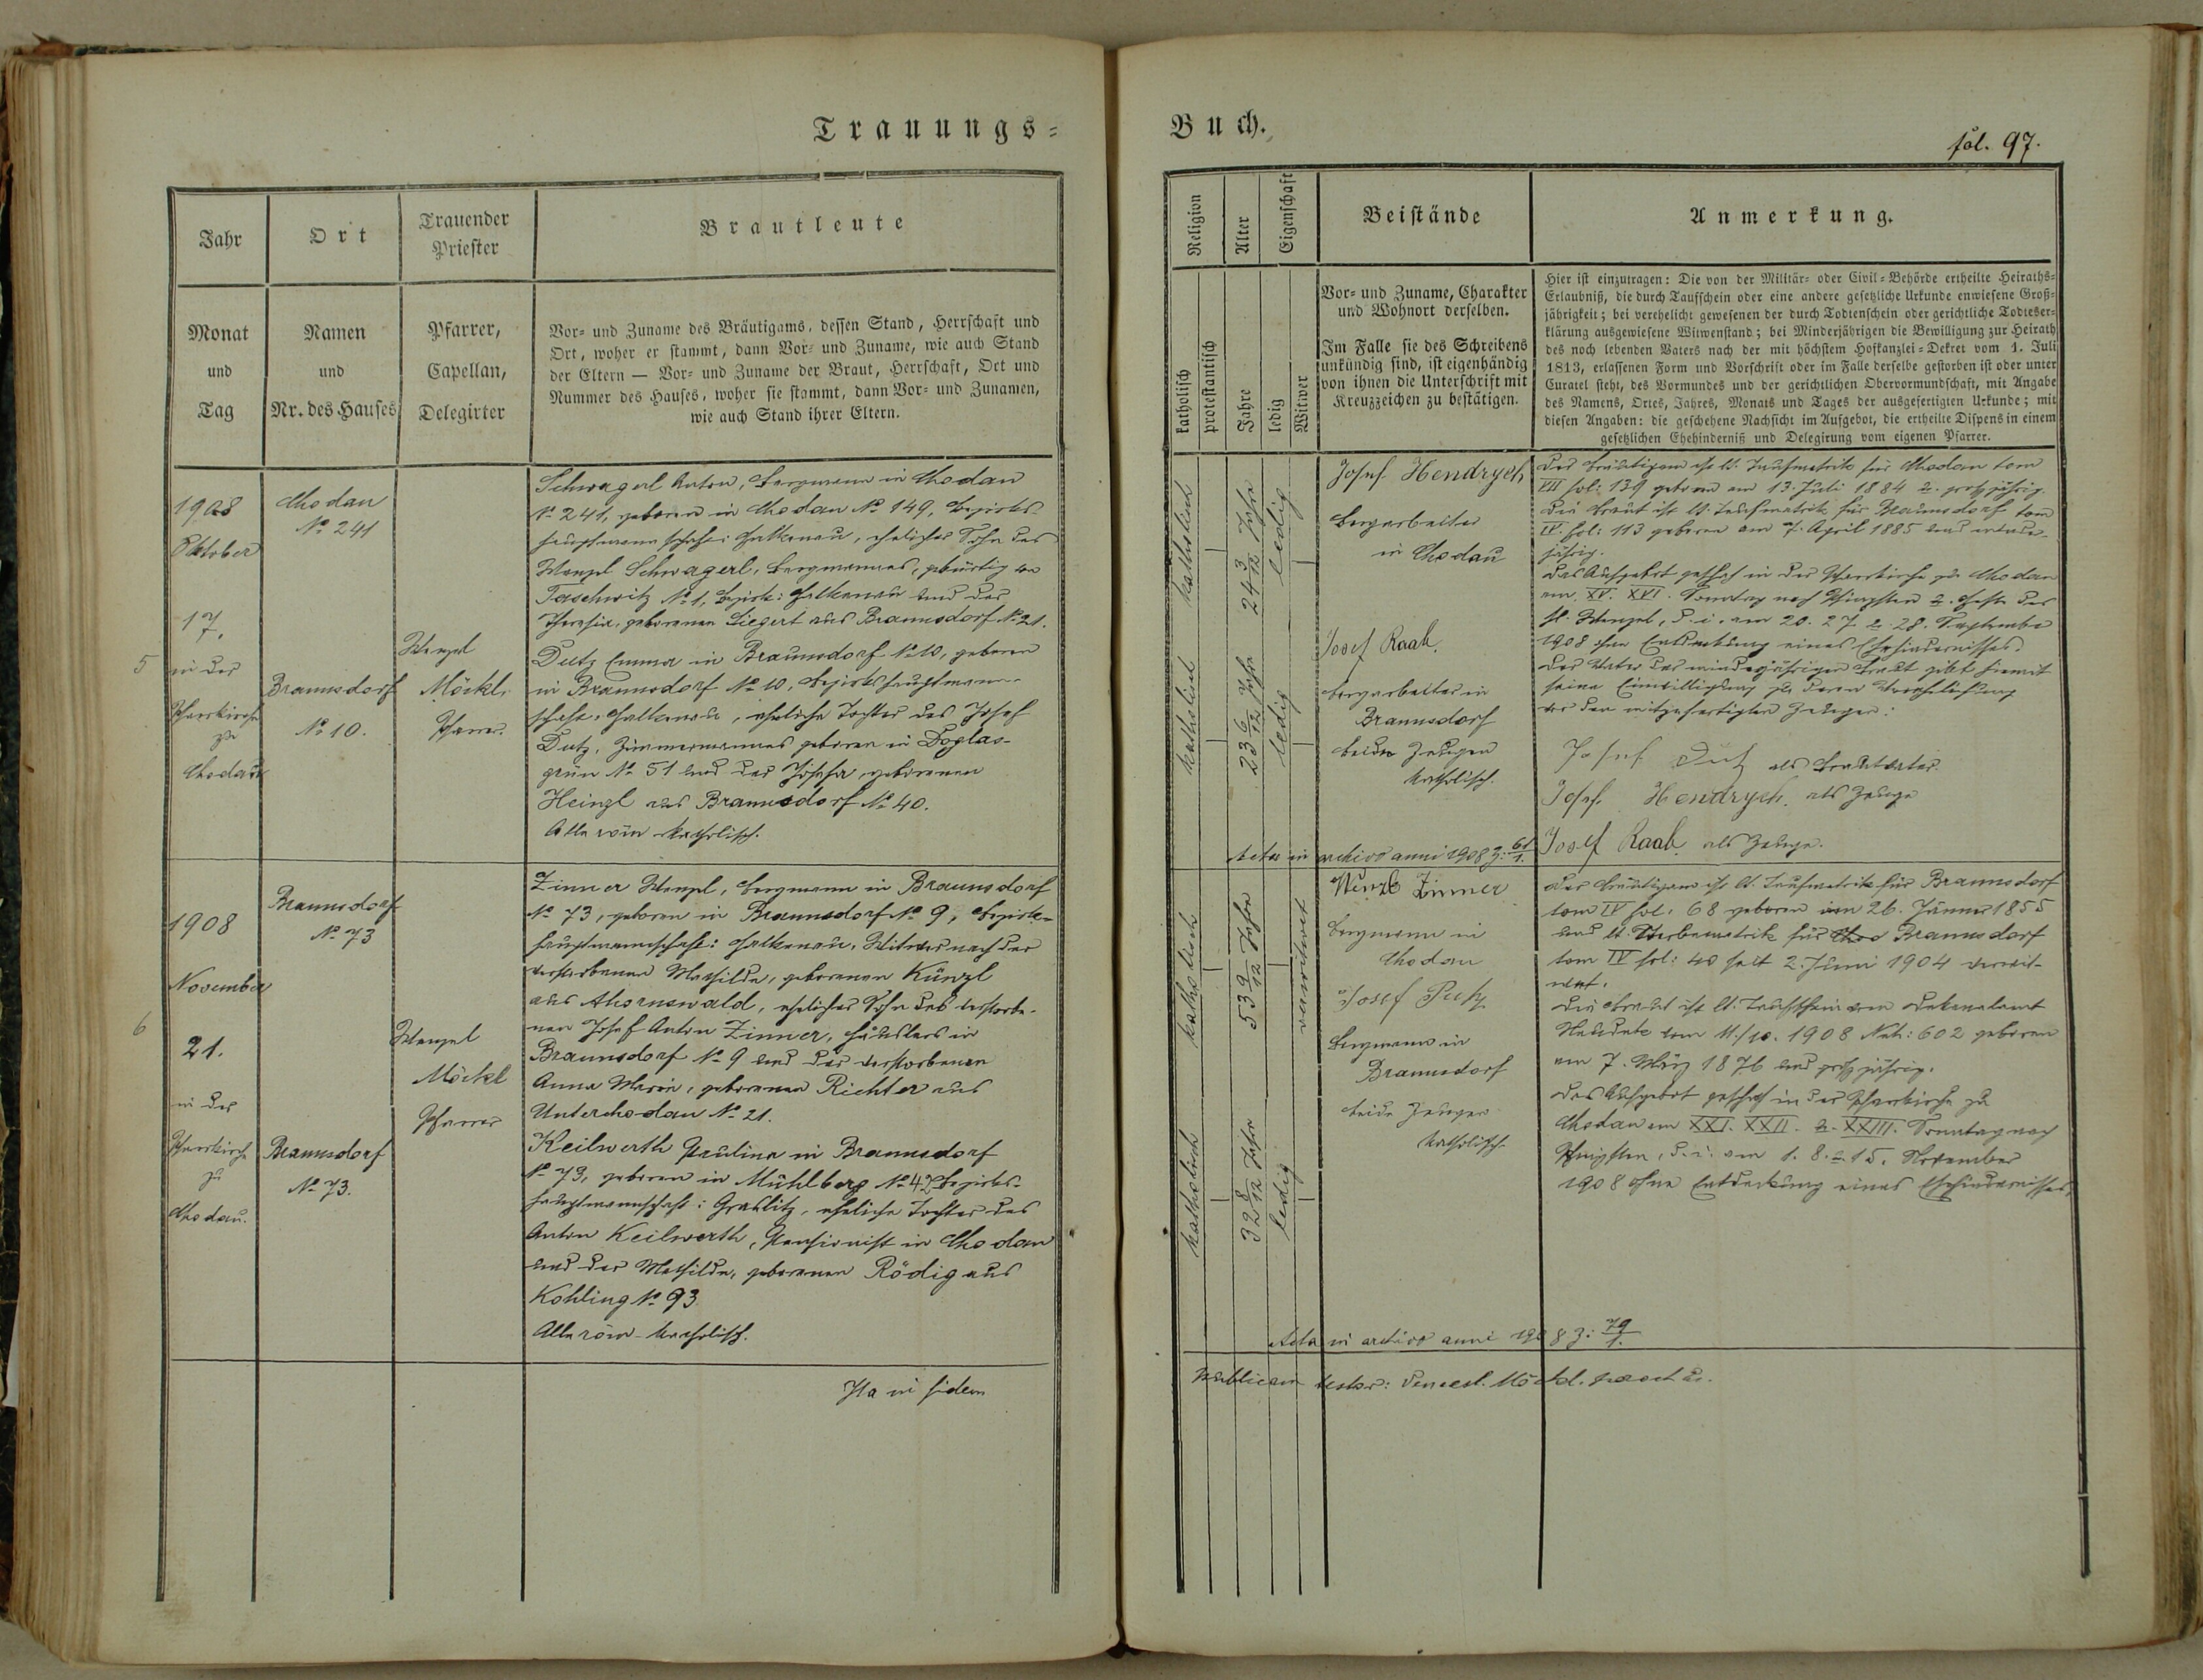 Trauungs=
Buch.
fol. 97.
Jahr
Ort
Trauender
Priester
Brautleute
Monat
und
Tag
Namen
und
Nr. des Hauses
Pfarrer,
Capellan,
Delegirter
Vor- und Zuname des Bräutigams, dessen Stand, Herrschaft und
Ort, woher er stammt, dann Vor- und Zuname, wie auch Stand
der Eltern — Vor- und Zuname der Braut, Herrschaft, Ort und
Nummer des Hauses, woher sie stammt, dann Vor- und Zunamen,
wie auch Stand ihrer Eltern.
1908
Oktober
17.
in der
Pfarrkirche
zu
Chodau
5
Chodau
№ 241
Braunsdorf
№ 10.
Wenzel
Möckl,
Pfarrer.
Schwagerl Anton, Bergmann in Chodau
№ 241, geboren in Chodau № 149, Bezirks-
hauptmannschaft: Falkenau, ehelicher Sohn des
Wenzl Schwagerl, Bergmannes, gebürtig von
Poschwitz № 1, Bezirk: Falkenau und der
Theresia, geborenen Siegert aus Braunsdorf № 21.
Dutz Emma in Braunsdorf № 10, geboren
in Braunsdorf № 10, Bezirkshauptmann-
schaft: Falkenau, eheliche Tochter des Josef
Dutz, Zimmermannes geboren in Doglas-
grün № 51 und der Josefa, geborenen
Heinzl aus Braunsdorf № 40.
Alle röm-katholisch.
1908
November
21.
in der
Pfarrkirche
zu
Chodau.
6
Braunsdorf
№ 73
Braunsdorf
№ 73.
Wenzel
Möckl
Pfarrer
Zinner Wenzl, Bergmann in Braunsdorf
№ 73, geboren in Braunsdorf № 9, Bezirks-
hauptmannschaft: Falkenau, Witwer nach der
verstorbenen Mathilde, geborenen Künzl
aus Ahornswald, ehelicher Sohn des verstorbe-
nen Josef Anton Zinner, Häuslers in
Braunsdorf № 9 und der verstorbenen
Anna Maria, geborenen Richter aus
Unterchodau № 21.
Keilwerth Paulina in Braunsdorf
№ 73, geboren in Mühlberg № 42, Bezirks-
hauptmannschaft: Graslitz, eheliche Tochter des
Anton Keilwerth, Pensionist in Chodau
und der Mathilde, geborenen Rödig aus
Kohling № 93
Alle röm-katholisch.
Ita in fidem
Religion
Alter
Eigenschaft
Beistände
Anmerkung.
katholisch
protestantisch
Jahre
ledig
Witwer
Vor- und Zuname, Charakter
und Wohnort derselben.
Im Falle sie des Schreibens
unkündig sind, ist eigenhändig
von ihnen die Unterschrift mit
Kreuzzeichen zu bestätigen.
Hier ist einzutragen: Die von der Militär- oder Civil-Behörde ertheilte Heiraths-
Erlaubniß, die durch Taufschein oder eine andere gesetzliche Urkunde erwiesene Groß-
jährigkeit; bei verehelicht gewesenen der durch Todtenschein oder gerichtliche Todteser-
klärung ausgewiesene Witwenstand; bei Minderjährigen die Bewilligung zur Heirath
des noch lebenden Vaters nach der mit höchstem Hofkanzlei-Dekret vom 1. Juli
1813, erlassenen Form und Vorschrift oder im Falle derselbe gestorben ist oder unter
Curatel steht, des Vormundes und der gerichtlichen Obervormundschaft, mit Angabe
des Namens, Ortes, Jahres, Monats und Tages der ausgefertigten Urkunde; mit
diesen Angaben: die geschehene Nachsicht im Aufgebot, die ertheilte Dispens in einem
gesetzlichen Ehehinderniß und Delegirung vom eigenen Pfarrer.
katholisch
24 3/12 Jahr
ledig
katholisch
23 6/12 Jahr
ledig
Josef Hendrych
Bergarbeiter
in Chodau
Josef Raab.
Bergarbeiter in
Braunsdorf
beide Zeugen
katholisch.
Acta in archivo anni 1908 Z: 61/1.
Der Bräutigam ist lt. Taufmatrik für Chodau tom
VII fol: 139 geboren am 13. Juli 1884 u. großjährig.
Die Braut ist lt. Taufmatrik für Braunsdorf tom
IV. fol: 113 geboren am 7. April 1885 und minder-
jährig.
Das Aufgebot geschah in der Pfarrkirche zu Chodau
am XV. XVI. Sonntag nach Pfingsten u. Feste des
hl. Wenzel, d. i. am 20. 27. u. 28. September
1908 ohne Entdeckung eines Ehehindernisses.
Der Vater der minderjährigen Braut gibt hiemit
seine Einwilligung zu deren Verehelichung
vor den mitgefertigten Zeugen:
Josef Dutz als Brautvater
Josef Hendrych. als Zeuge
Josef Raab. als Zeuge.
katholisch
53 9/12 Jahr
verwitwet
katholisch
32 8/12 Jahr
ledig
Wenzl Zinner
Bergmann in
Chodau
Josef
Bergmann in
Braunsdorf
beide Zeugen
katholisch.
Der Bräutigam ist lt. Taufmatrik für Braunsdorf
tom IV fol: 68 geboren am 26. Jänner 1855
und lt. Sterbematrik für Braunsdorf
tom IV fol: 40 seit 2. Juni 1904 verwit-
wet.
Die Braut ist lt. Taufschein vom Dekanalamt
Neudek vom 11./10. 1908 Nrb: 602 geboren
am 7. März 1876 und großjährig.
Das Aufgebot geschah in der Pfarrkirche zu
Chodau am XXI. XXII. u. XXIII. Sonntag nach
Pfingsten, d. i. am 1. 8. u. 15. November
1908 ohne Entdeckung eines Ehehindernisses.
Acta in archivo anni 1908 Z: 79/1.
publicam testor: Vencesl. Möckl.